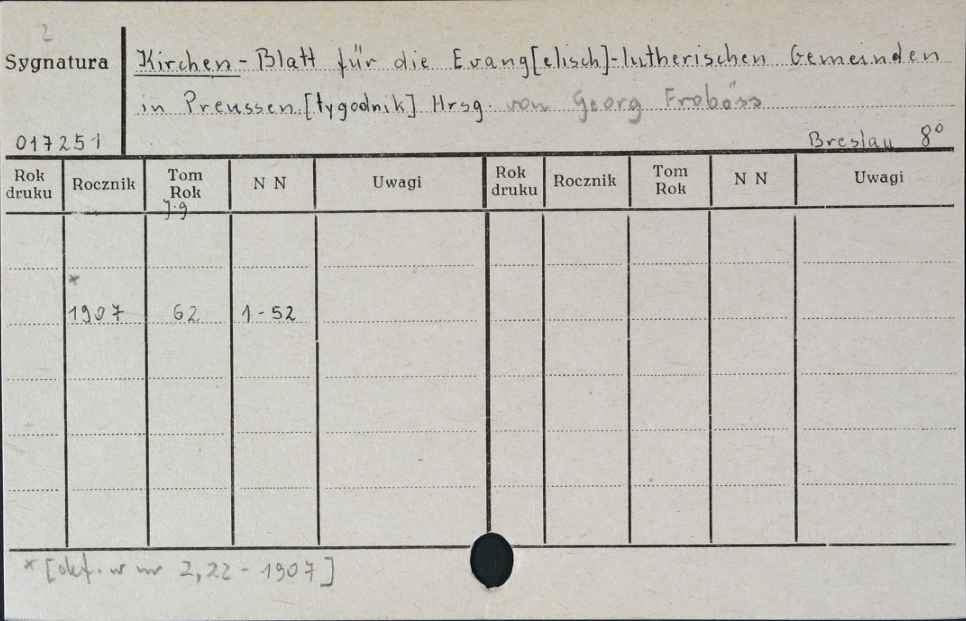 2
Sygnatura
Kirchen-Blatt für die Evang[elisch]-lutherischen Gemeinden
in Preussen.[tygodnik] Hrsg. von Georg Froböss
017251
Breslau 8°
Rok druku Rocznik Tom Rok N N Uwagi Rok druku Rocznik Tom Rok N N Uwagi
J.g
*
1907 62 1-52
* [def. w nr 2,22-1907]